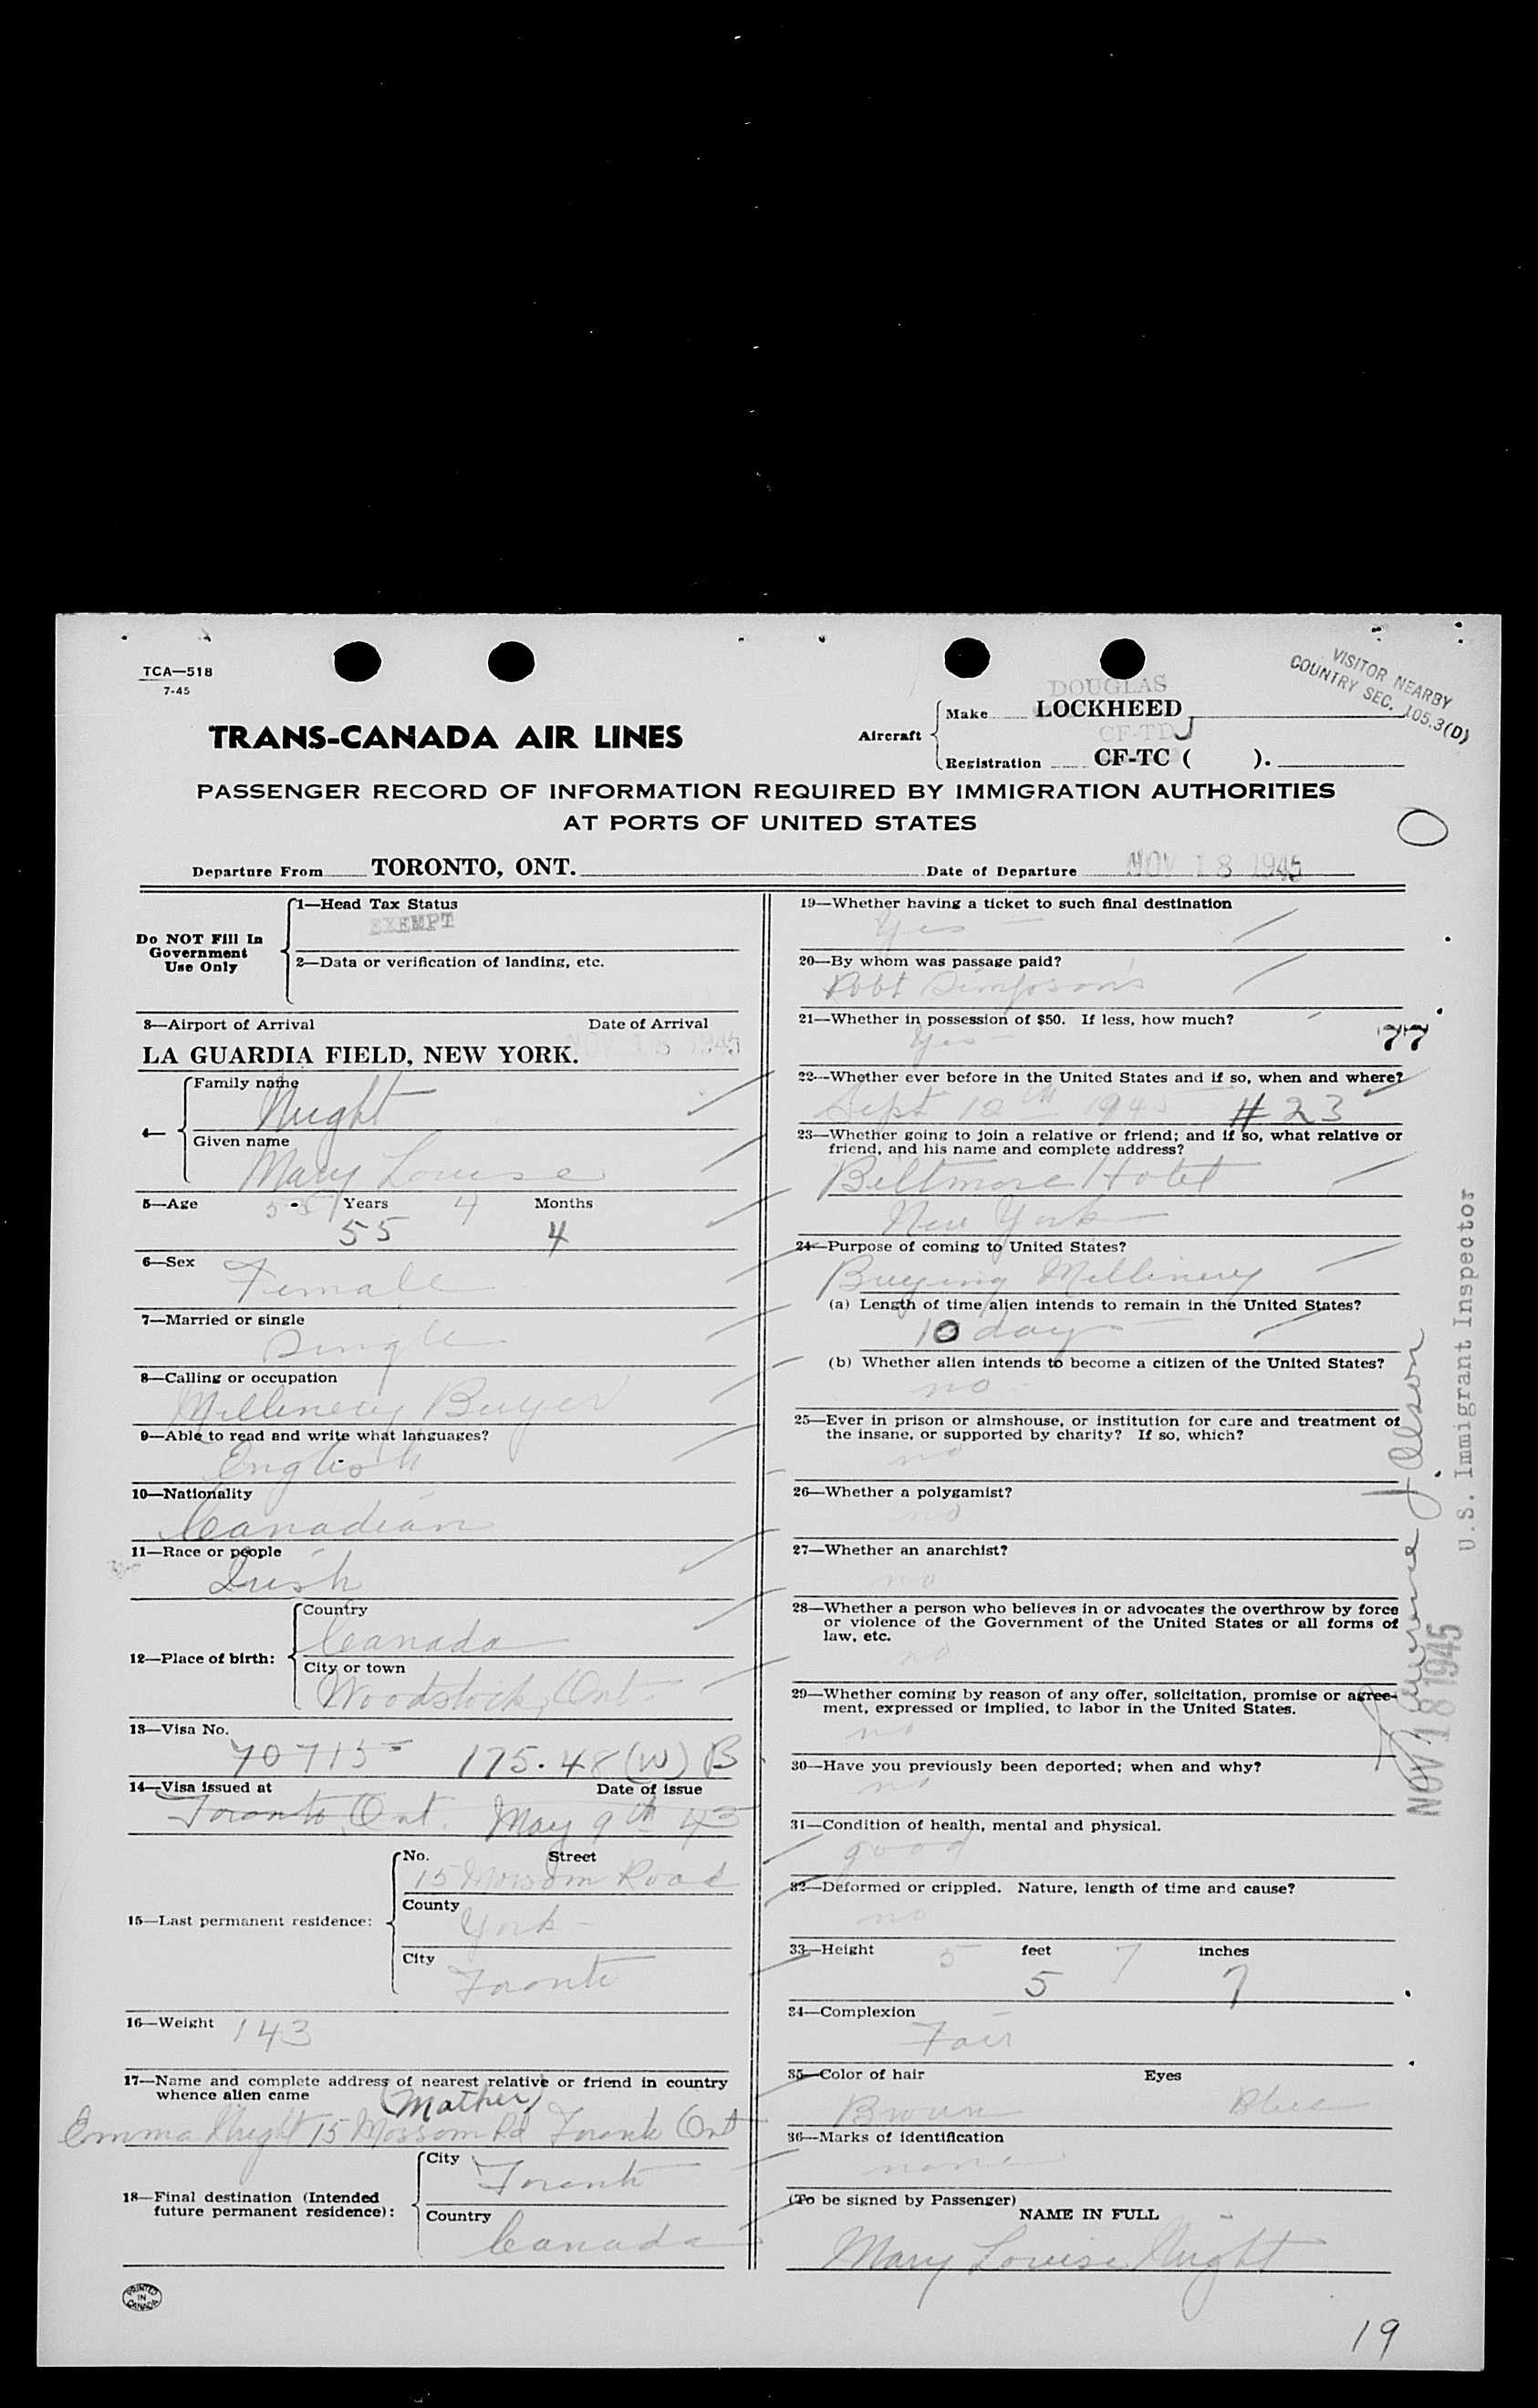 TCA—518
7-45
VISITOR NEARBY
COUNTRY SEC. 105.3(D)
TRANS-CANADA AIR LINES
DOUGLAS
Aircraft Make LOCKHEED
CF-TD
Registration CF-TC ( ).
PASSENGER RECORD OF INFORMATION REQUIRED BY IMMIGRATION AUTHORITIES
AT PORTS OF UNITED STATES
Departure From TORONTO, ONT. Date of Departure NOV 18 1945
Do NOT Fill In
Government
Use Only
1—Head Tax Status
EXEMPT
2—Data or verification of landing, etc.
3—Airport of Arrival Date of Arrival
LA GUARDIA FIELD, NEW YORK. NOV 18 1945
4— Family name
Given name
Mary Louise
5—Age 55 Years 4 Months
55 4
6—Sex Female
7—Married or single
Single
8—Calling or occupation
Millinery Buyer
9—Able to read and write what languages?
English
10—Nationality
Canadian
11—Race or people
Irish
12—Place of birth: Country
Canada
City or town
Woodstock, Ont.
13—Visa No.
70715 175.48(W) B
14—Visa issued at Date of issue
Toronto, Ont. May 9th 45
15—Last permanent residence: No. Street
15 Mossom Road
County
York
City
Toronto
16—Weight 143
17—Name and complete address of nearest relative or friend in country
whence alien came
(Mother)
Emma 15 Mossom Rd Toronto Ont
18—Final destination (Intended
future permanent residence): City
Toronto
Country
Canada
PRINTED
IN
CANADA
19—Whether having a ticket to such final destination
Yes
20—By whom was passage paid?
Robt Simpson's
21—Whether in possession of $50. If less, how much?
Yes 77
22—Whether ever before in the United States and if so, when and where?
Sept 10th 1945 # 23
23—Whether going to join a relative or friend; and if so, what relative or
friend, and his name and complete address?
Biltmore Hotel
New York
24—Purpose of coming to United States?
Buying Millinery
(a) Length of time alien intends to remain in the United States?
10 days
(b) Whether alien intends to become a citizen of the United States?
no
25—Ever in prison or almshouse, or institution for care and treatment of
the insane, or supported by charity? If so, which?
no
26—Whether a polygamist?
no
27—Whether an anarchist?
no
28—Whether a person who believes in or advocates the overthrow by force
or violence of the Government of the United States or all forms of
law, etc.
no
29—Whether coming by reason of any offer, solicitation, promise or agree-
ment, expressed or implied, to labor in the United States.
no
30—Have you previously been deported; when and why?
no
31—Condition of health, mental and physical.
good
32—Deformed or crippled. Nature, length of time and cause?
no
33—Height 5 feet 7 inches
5 7
34—Complexion
Fair
35—Color of hair Eyes
Brown Blue
36—Marks of identification
none
(To be signed by Passenger)
NAME IN FULL
Mary Louise
U.S. Immigrant Inspector
NOV 18 1945
19